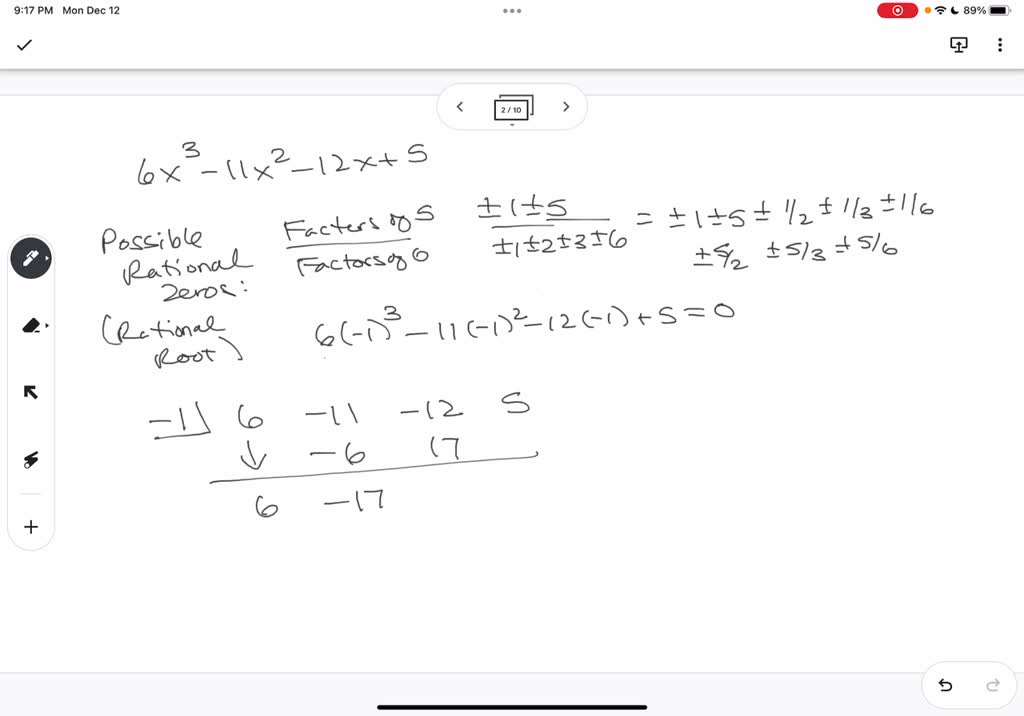 9:17 PM Mon Dec 12
89%
2 / 10
6x³ - 11x² - 12x + 5
Possible Rational Zeros:
Factors of 5 / Factors of 6
±1 ±5 / ±1 ±2 ±3 ±6 = ±1 ±5 ± 1/2 ± 1/3 ± 1/6
± 5/2 ± 5/3 ± 5/6
(Rational Root)
6(-1)³ - 11(-1)² - 12(-1) + 5 = 0
-1| 6 -11 -12 5
↓ -6 17
6 -17